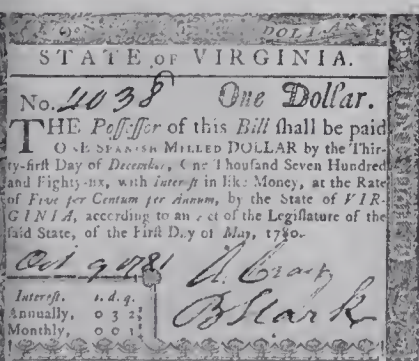 DOLL
STATE OF VIRGINIA.
No. 4038 One Dollar.
THE Poſſeſſor of this Bill ſhall be paid
ONE SPANISH MILLED DOLLAR by the Thir-
ty-firſt Day of December, One Thouſand Seven Hundred
and Eighty-ſix, with Intereſt in like Money, at the Rate
of Five per Centum per Annum, by the State of VIR-
GINIA, according to an Act of the Legiſlature of the
ſaid State, of the Firſt Day of May, 1780.
Oct 9 1781 A. Craig
Intereſt. s. d. q. B Stark
Annually, 0 3 2
Monthly, 0 0 1